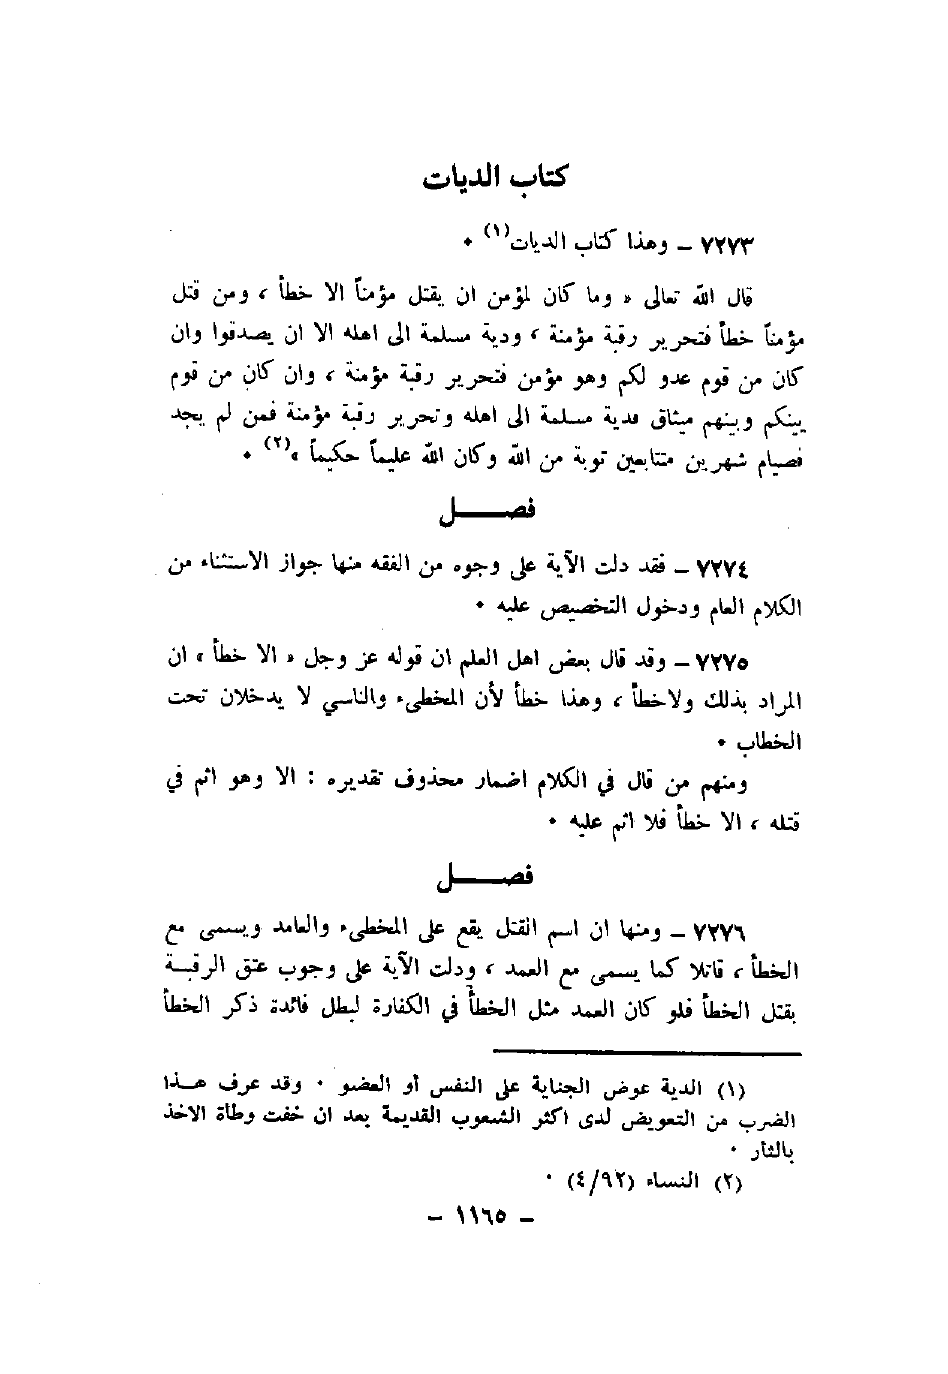 كتاب الديات
٧٢٧٣ ــ وهذا كتاب الديات(١) ٠
قال الله تعالى « وما كان لمؤمن ان يقتل مؤمناً الا خطأ ، ومن قتل
مؤمناً خطأ فتحرير رقبة مؤمنة ، ودية مسلمة الى اهله الا ان يصدقوا وان
كان من قوم عدو لكم وهو مؤمن فتحرير رقبة مؤمنة ، وان كان من قوم
بينكم وبينهم ميثاق فدية مسلمة الى اهله وتحرير رقبة مؤمنة فمن لم يجد
فصيام شهرين متتابعين توبة من الله وكان الله عليماً حكيماً »(٢) ٠
فصــــل
٧٢٧٤ ــ فقد دلت الآية على وجوه من الفقه منها جواز الاستثناء من
الكلام العام ودخول التخصيص عليه ٠
٧٢٧٥ ــ وقد قال بعض اهل العلم ان قوله عز وجل « الا خطأ » ان
المراد بذلك ولاخطأ ، وهذا خطأ لأن المخطىء والناسي لا يدخلان تحت
الخطاب ٠
ومنهم من قال في الكلام اضمار محذوف تقديره : الا وهو اثم في
قتله ، الا خطأ فلا اثم عليه ٠
فصــــل
٧٢٧٦ ــ ومنها ان اسم القتل يقع على المخطىء والعامد ويسمى مع
الخطأ ، قاتلا كما يسمى مع العمد ، ودلت الآية على وجوب عتق الرقبــة
بقتل الخطأ فلو كان العمد مثل الخطأ في الكفارة لبطل فائدة ذكر الخطأ
(١) الدية عوض الجناية على النفس أو العضو ٠ وقد عرف هــذا
الضرب من التعويض لدى اكثر الشعوب القديمة بعد ان خفت وطأة الاخذ
بالثأر ٠
(٢) النساء (٤/٩٢) ٠
– ١١٦٥ –